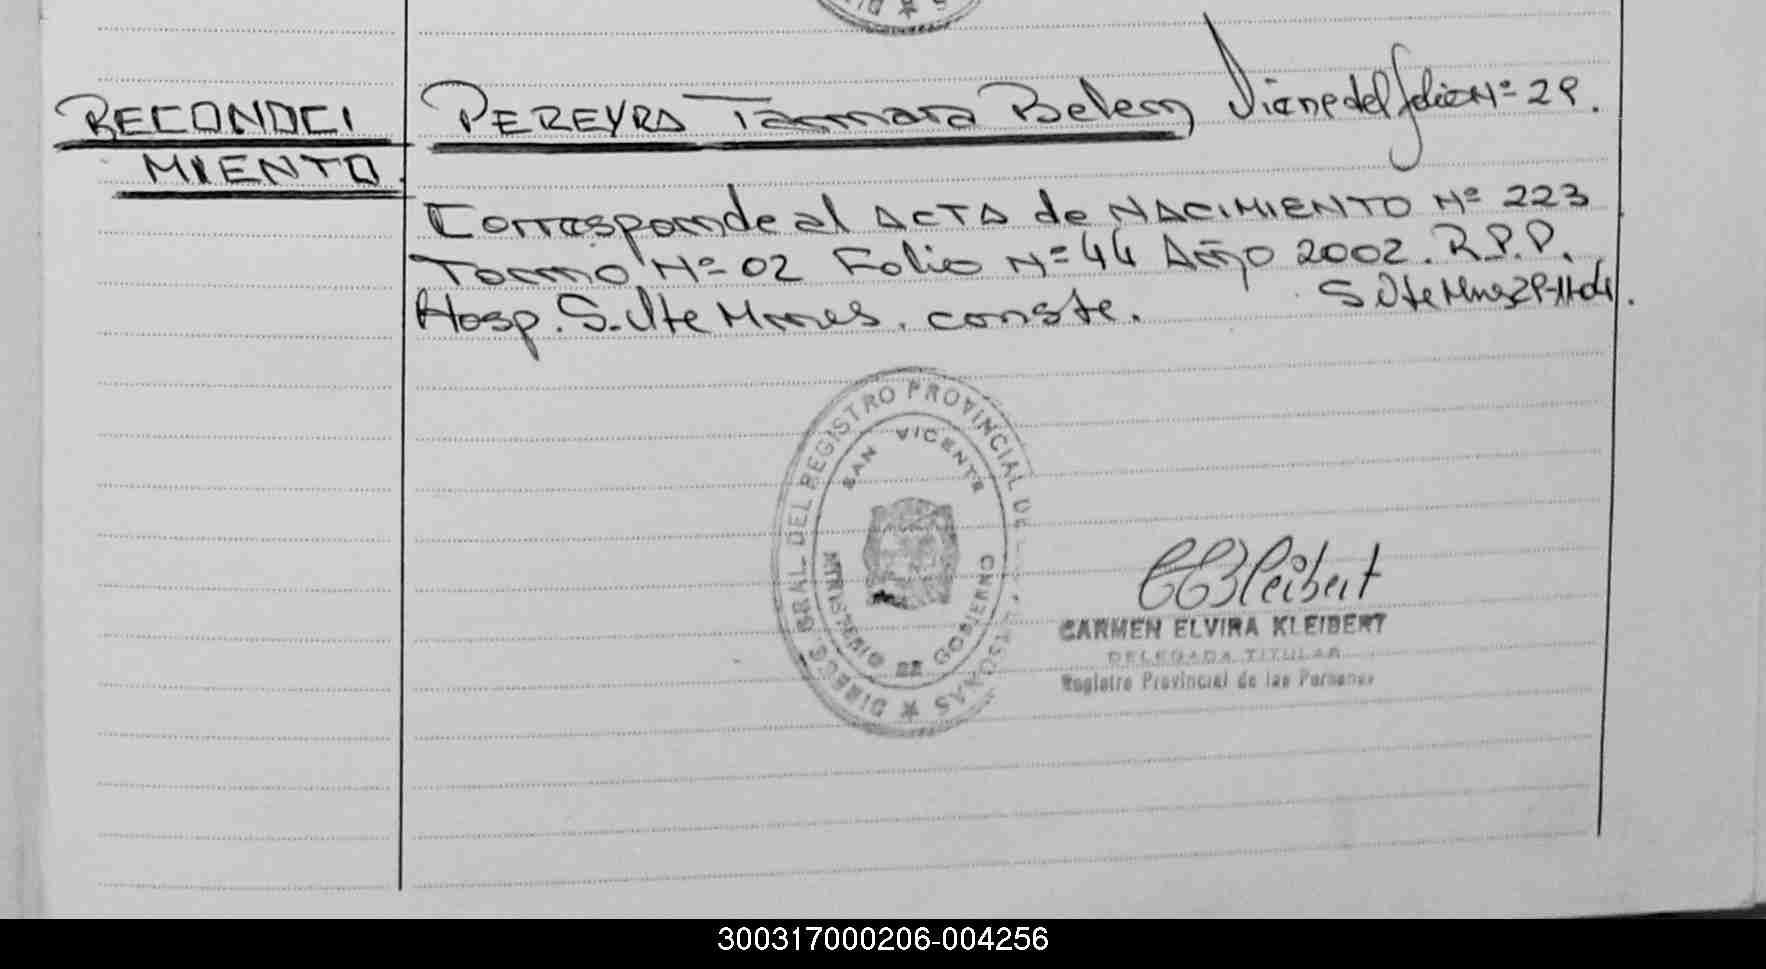 RECONOCI
MIENTO.
PEREYRA Tamara Belen, Viene del folio Nº 29.
Corresponde al ACTA de NACIMIENTO Nº 223
Tomo Nº 02 Folio Nº 44 Año 2002. R.P.P.
Hosp. S. Vte Mnes. conste.
S. Vte Mnes 29-11-04.
DIRECC GRAL DEL REGISTRO PROVINCIAL DE
SONAS
SAN VICENTE
MINISTERIO DE GOBIERNO
CKleibert
CARMEN ELVIRA KLEIBERT
DELEGADA TITULAR
Registro Provincial de las Personas
300317000206-004256